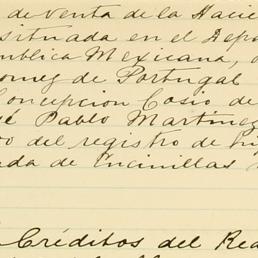 de venta de la Haci
situada en el Depa
ública Mexicana,
Gomez de Portugal
Concepcion Cosio de
sé Pablo Martinez
o del registro de hi
da de Encinillas
Créditos del Rea